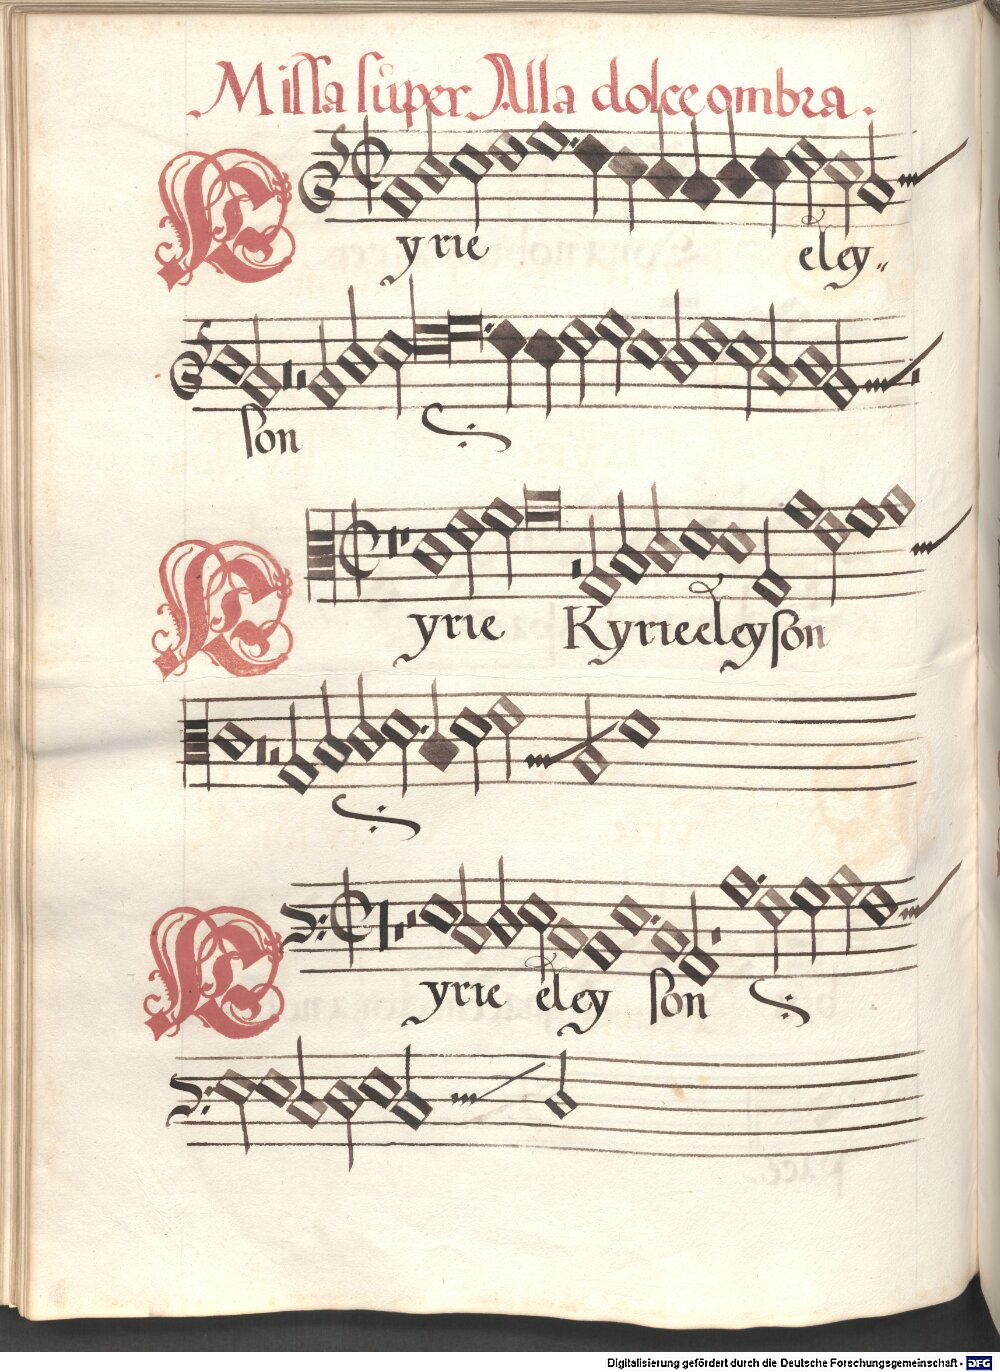 Missa super Alla dolce ombra.
Kyrie eley„
son
Kyrie Kyrieeleyson
Kyrie eley son
Digitalisierung gefördert durch die Deutsche Forschungsgemeinschaft - DFG